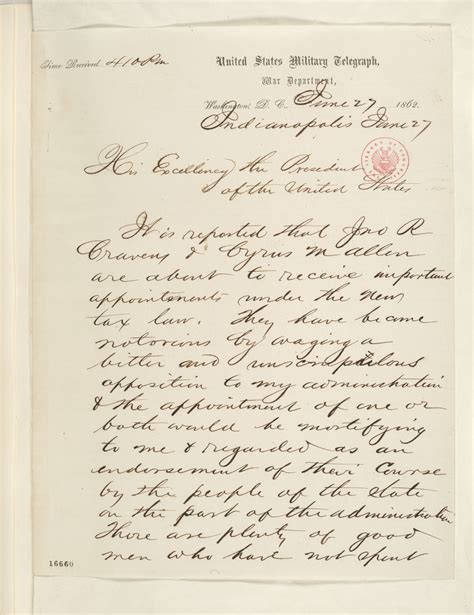 Time Received 4 10 Pm
United States Military Telegraph,
War Department,
Washington, D. C. June 27 1862.
Indianopolis June 27
His Excellency the President
of the United States
It is reported that Jno R
Cravens & Cyrus M Allen
are about to receive important
appointments under the New
tax law. They have became
notorious by waging a
bitter and unscrupulous
opposition to my administration
& the appointment of one or
both would be mortifying
to me & regarded as an
endorsement of their Course
by the people of the State
on the part of the administration
There are plenty of good
men who have not spent
16660